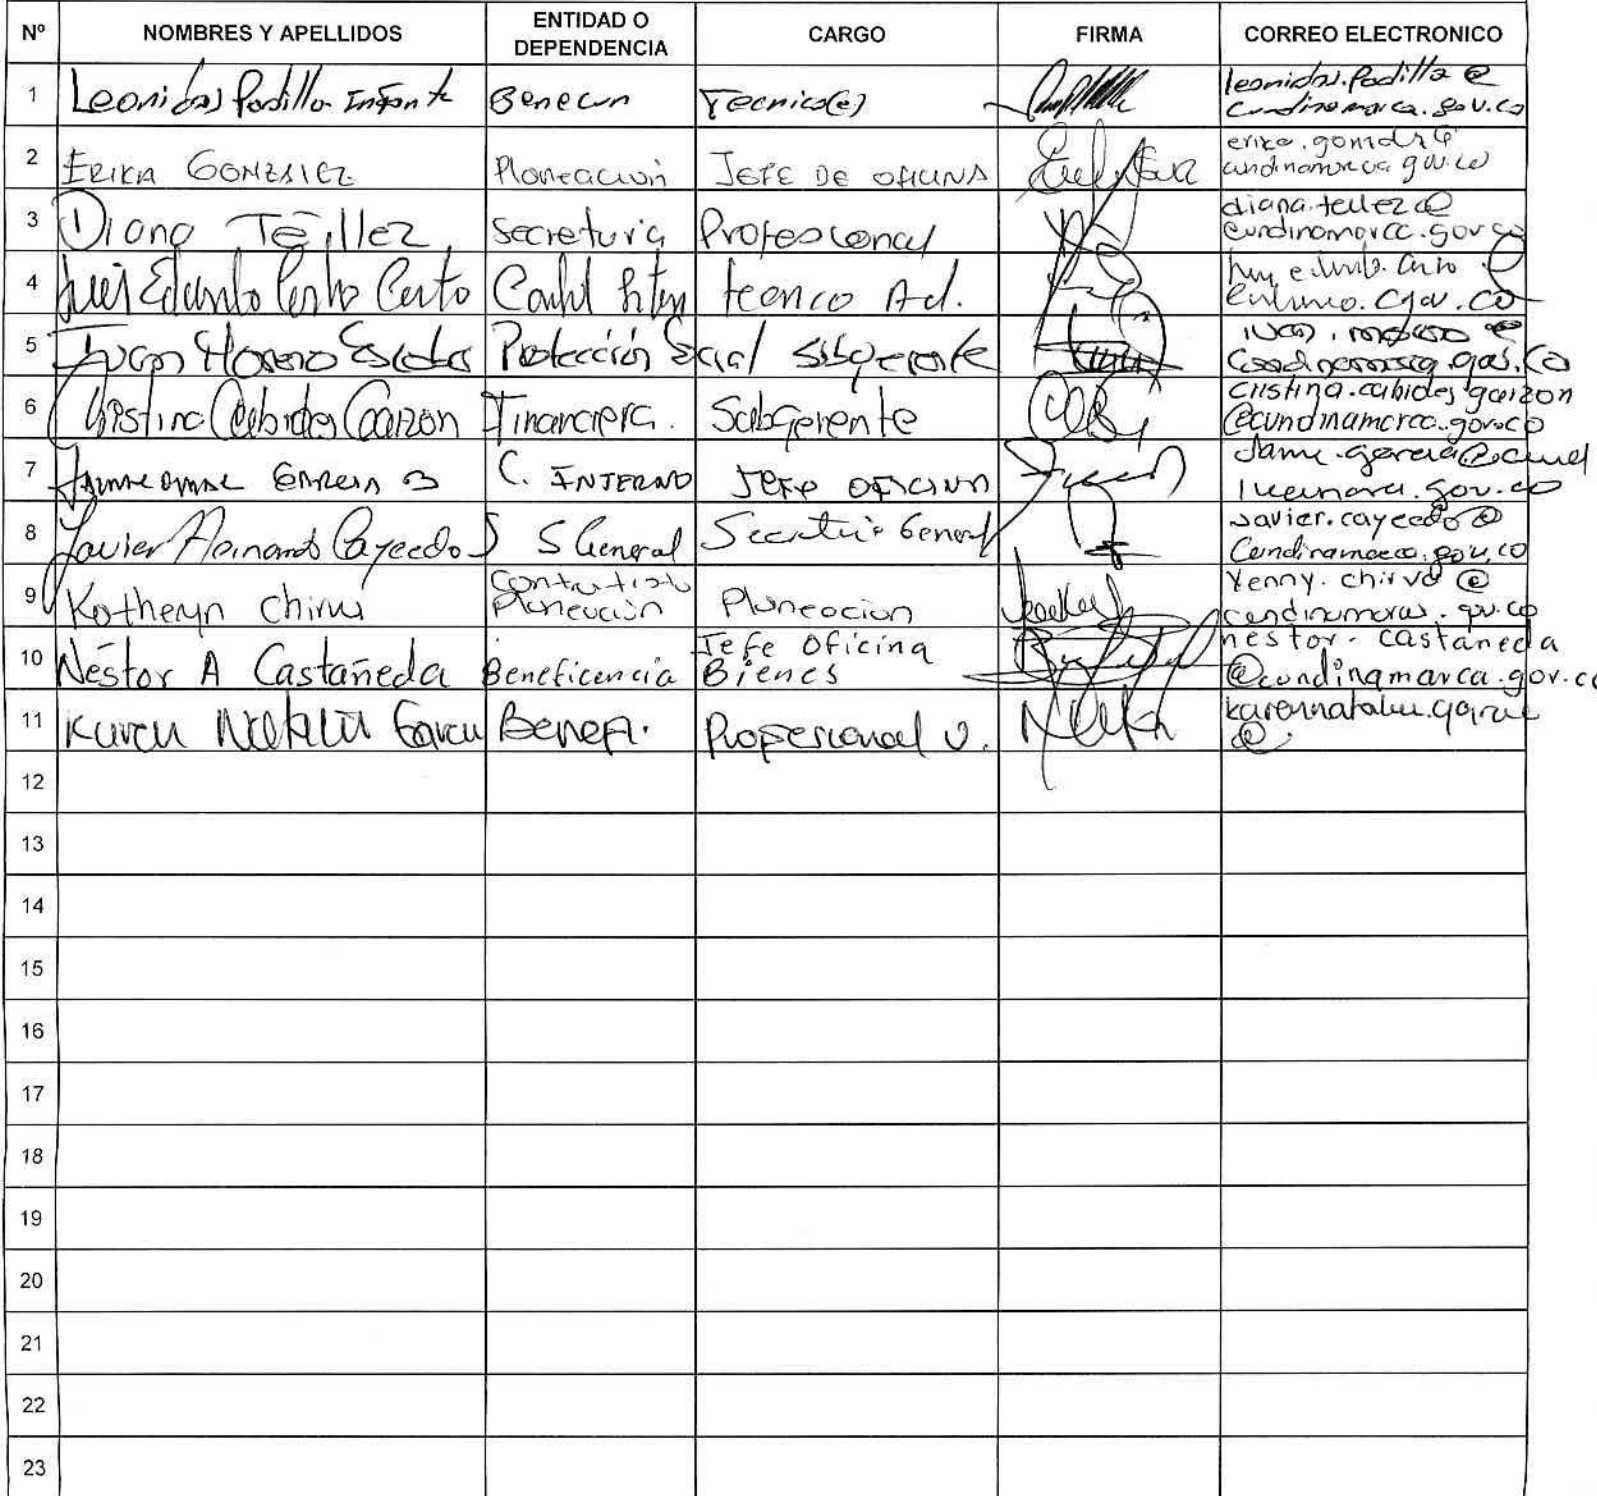 Nº NOMBRES Y APELLIDOS ENTIDAD O DEPENDENCIA CARGO FIRMA CORREO ELECTRONICO
1 Leonidas Padilla Infante Benecun Tecnico(e) leonidas.Padilla@
cundinamarca.gov.co
2 ERIKA GONZALEZ Planeación JEFE DE OFICINA
cundinamarca.gov.co
3 Diana Téllez Secretaria Profesional diana.tellez@
cundinamarca.gov.co
4 Luis Eduardo tecnico Ad.
5 Ivan Moreno Escobar Protección Social Subgerente ivan.moreno@
cundinamarca.gov.co
6 Cristina Cubides Garzon Financiera. Subgerente cristina.cubides garzon
@cundinamarca.gov.co
7 JAIME OMAR GARCIA B C. INTERNO JEFE OFICINA
8 Javier Hernando Caycedo S General Secretario General Javier.caycedo@
Cundinamarca.gov.co
9 Katheryn Chirva Contratista
Planeación Planeacion Yenny.chirva@
cundinamarca.gov.co
10 Néstor A Castañeda Beneficencia Jefe Oficina
Bienes nestor.castañeda
@cundinamarca.gov.co
11 Karen Natalia Garcia Benefi. Profesional U.
@
12
13
14
15
16
17
18
19
20
21
22
23